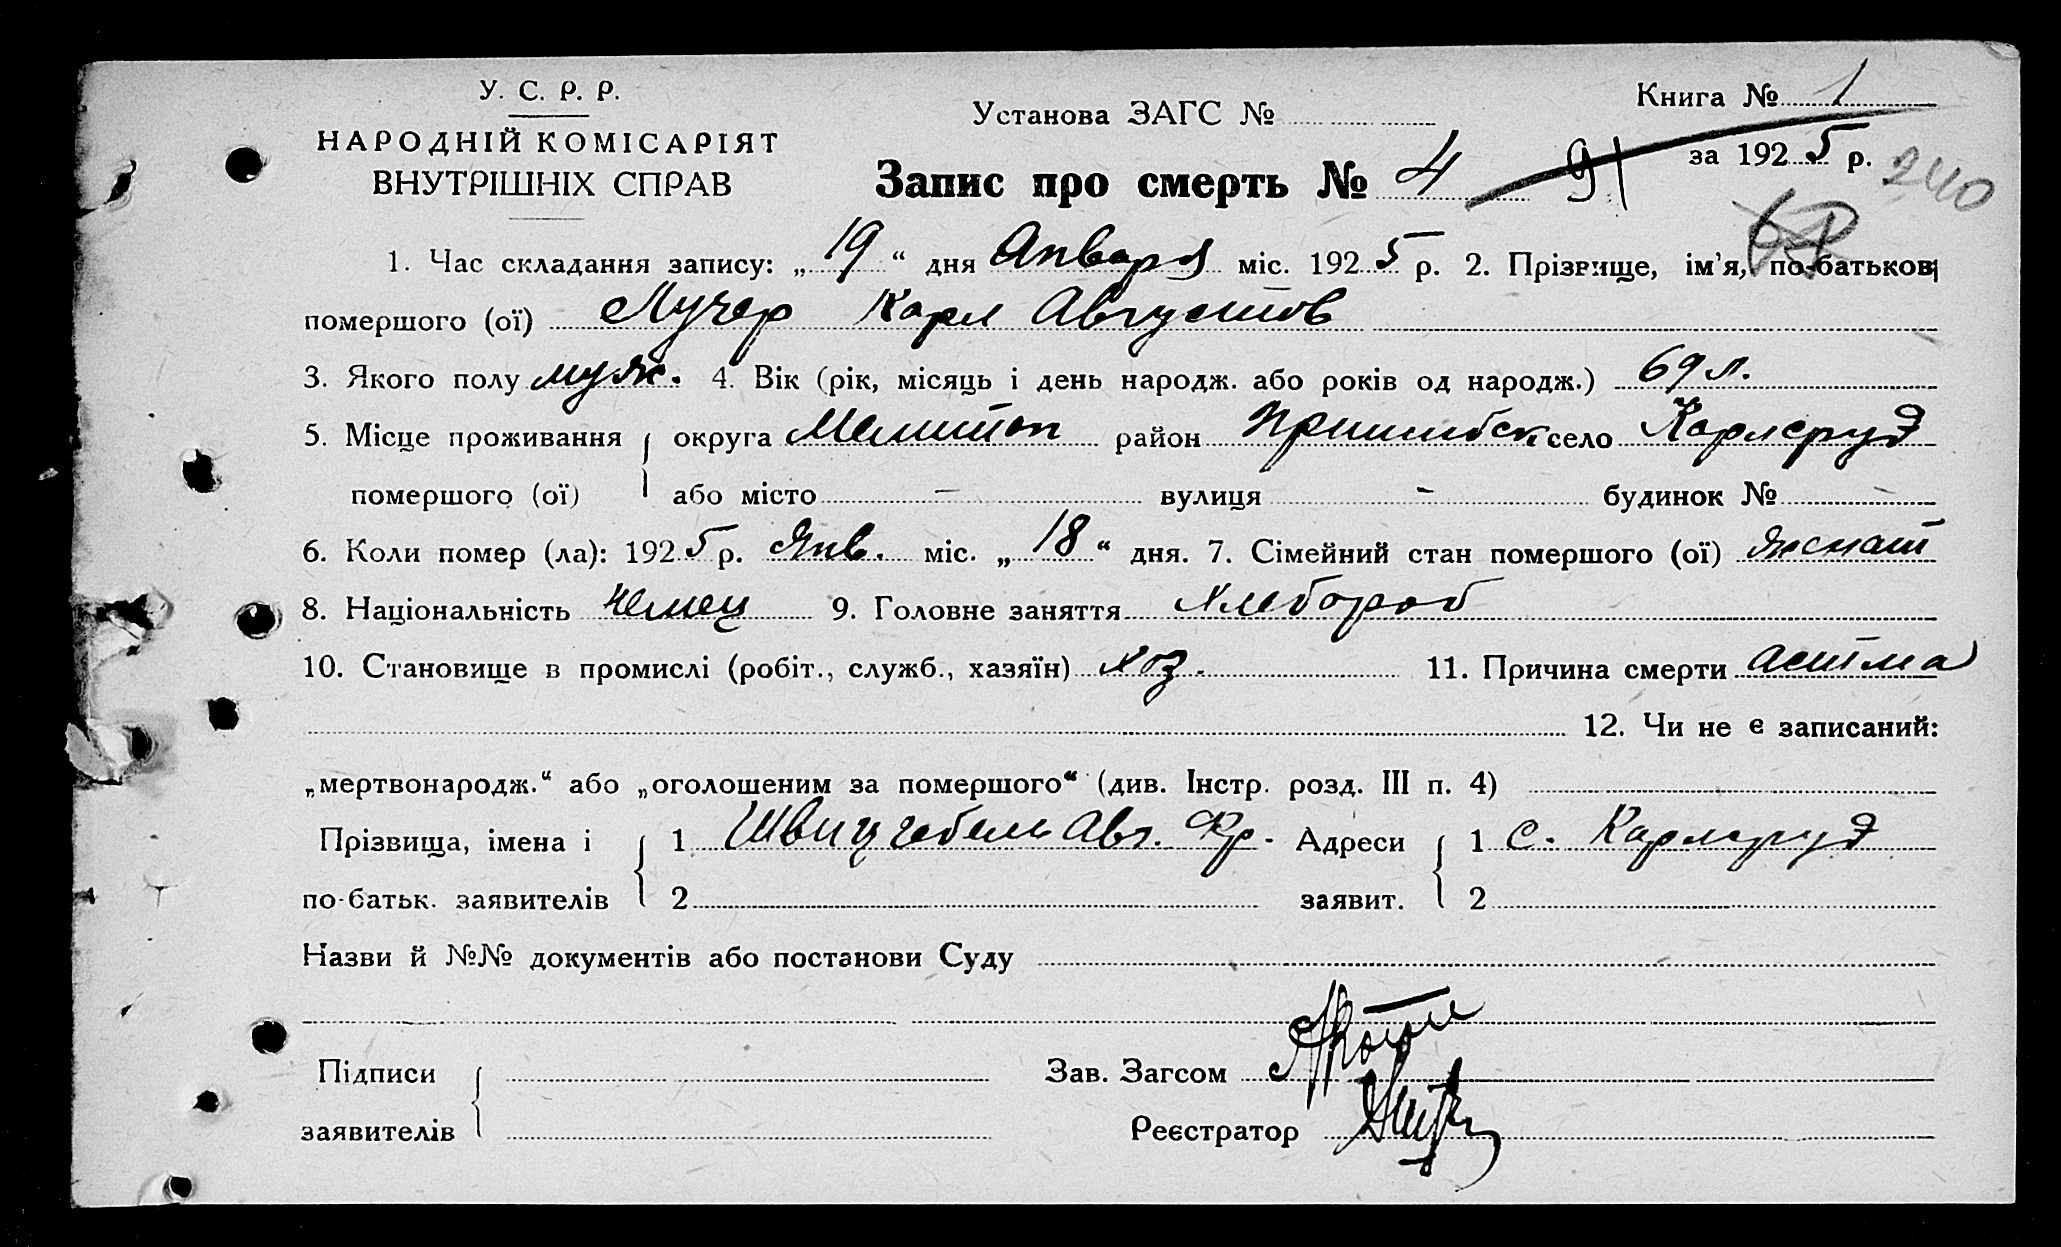 У. С. Р. Р.
НАРОДНІЙ КОМІСАРІЯТ
ВНУТРІШНІХ СПРАВ
Установа ЗАГС №
Книга № 1
за 1925 р. 240
Запис про смерть № 4 91
1. Час складання запису: „19“ дня Января міс. 1925 р. 2. Прізвище, ім’я, по-батькові
помершого (ої) Лучер Карл Августов
3. Якого полу муж. 4. Вік (рік, місяць і день народж. або років од народж.) 69 л.
5. Місце проживання округа Мелитоп район Пришибск село Карлсруэ
помершого (ої) або місто – вулиця – будинок № –
6. Коли помер (ла): 1925 р. Янв. міс. „18“ дня. 7. Сімейний стан помершого (ої) женат
8. Національність немец 9. Головне заняття хлебороб
10. Становище в промислі (робіт., служб., хазяїн) хоз. 11. Причина смерти астма
12. Чи не є записаний:
„мертвонародж.“ або „оголошеним за помершого“ (див. Інстр. розд. III п. 4)
Прізвища, імена і 1 Швицгебель Авг. Фр. Адреси 1 с. Карлсруэ
по-батьк. заявителів 2 заявит. 2
Назви й №№ документів або постанови Суду
Підписи Зав. Загсом
заявителів Реєстратор